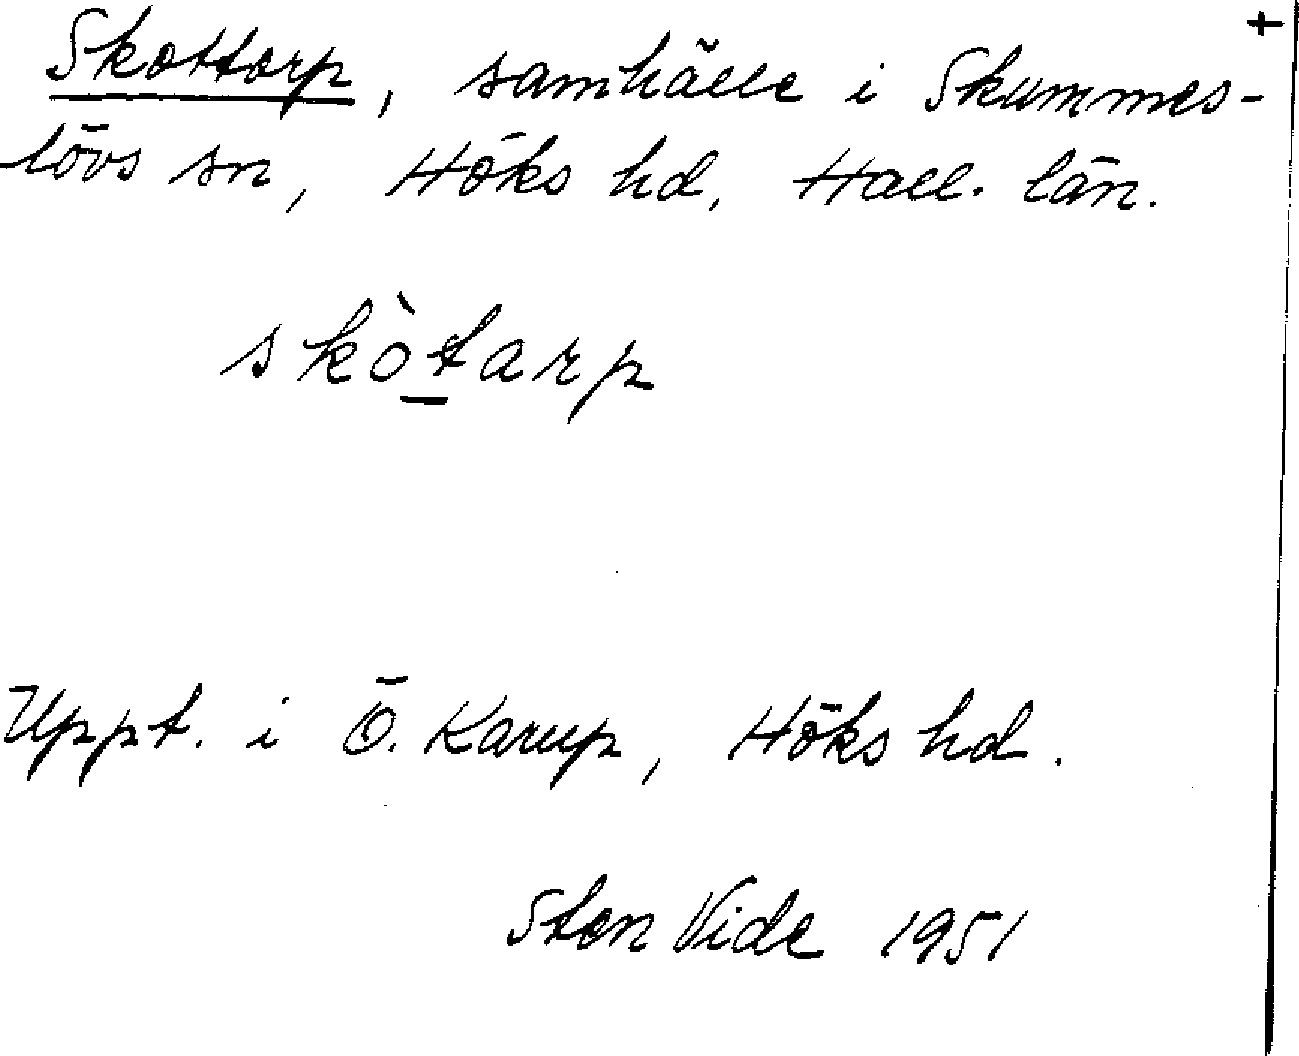 +
Skottorp, samhälle i Skummes-
lövs sn, Höks hd, Hall. län.
skòtarp
Uppt. i Ö. Karup, Höks hd.
Sten Vide 1951